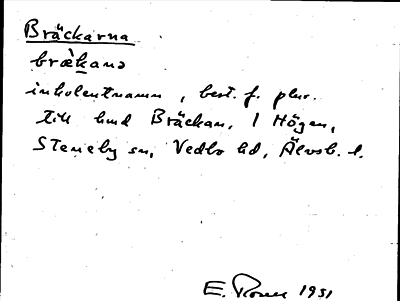 Bräckarna
bræ̀kana
inkolentnamn, best. f. plur.
till hmd Bräckan, 1 Högen,
Steneby sn, Vedbo hd, Älvsb. l.
E. 1931